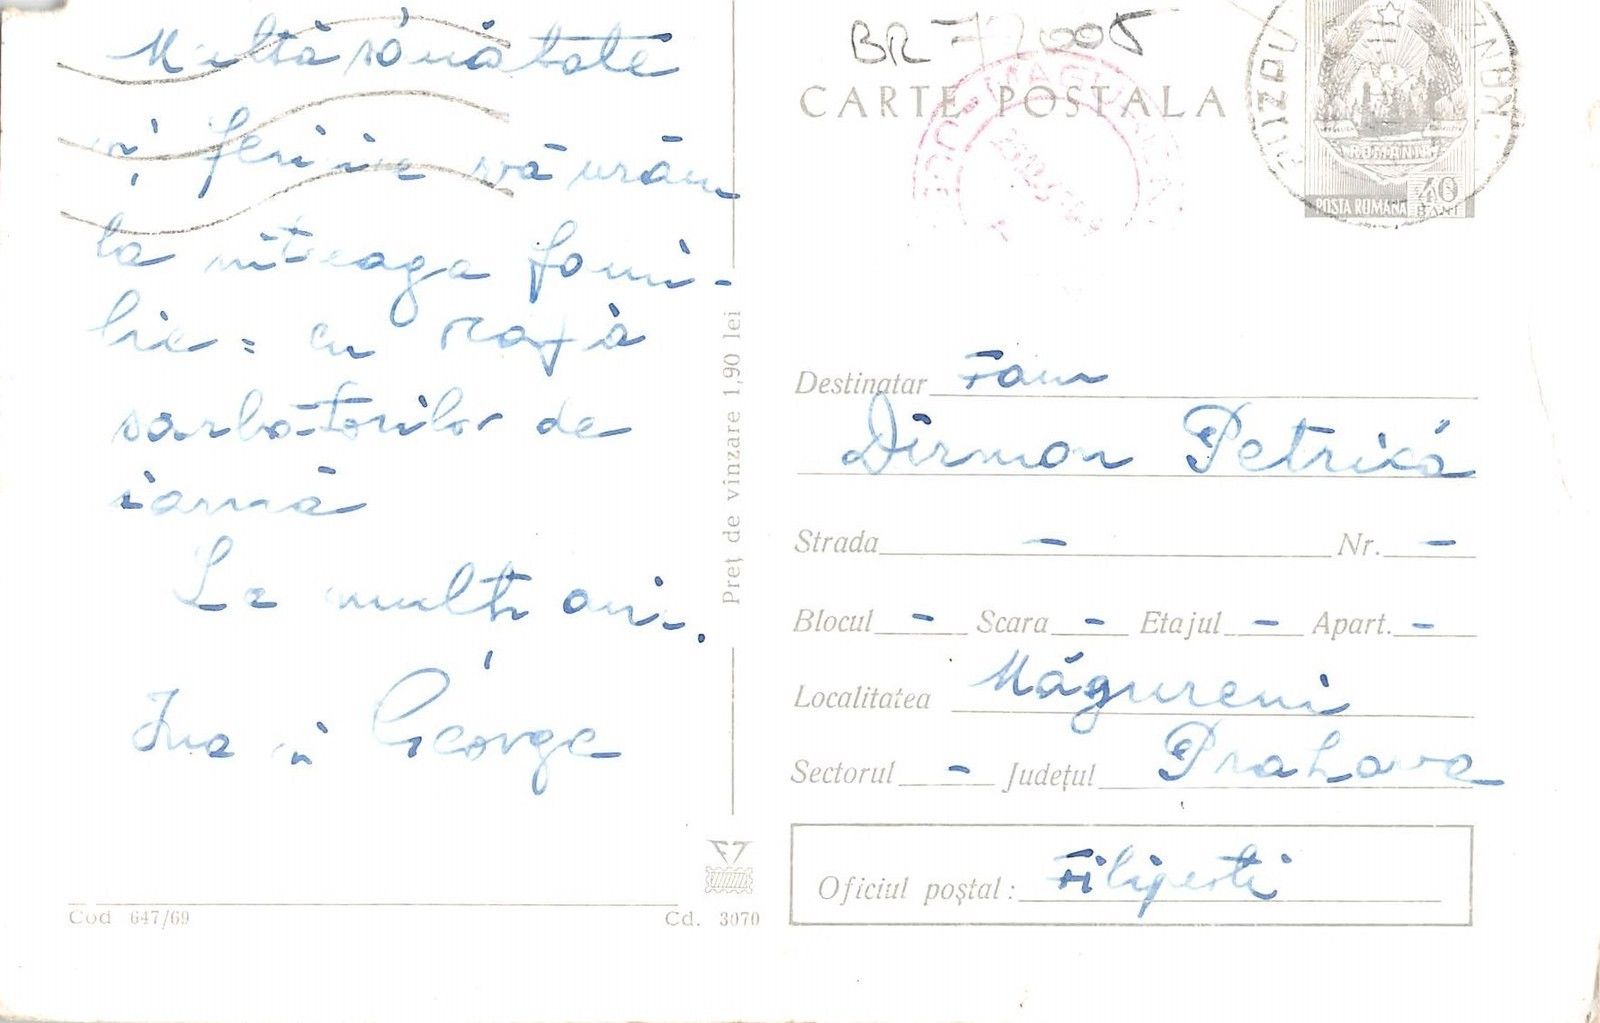 Multă sănătate
și fericire vă urăm
la întreaga fami-
lie = cu ocazia
sarbatorilor de
iarnă
La mulți ani.
Ina și George
BR 77005
CARTE POSTALA
BUZAU
ROMANIA
POSTA ROMANA 40 BANI
Preț de vinzare 1,90 lei
Destinatar Fam
Dîrmon Petrică
Strada - Nr. -
Blocul - Scara - Etajul - Apart. -
Localitatea Măgureni
Sectorul - Județul Prahova
Oficiul poștal: Filipesti
Cod 647/69
Cd. 3070